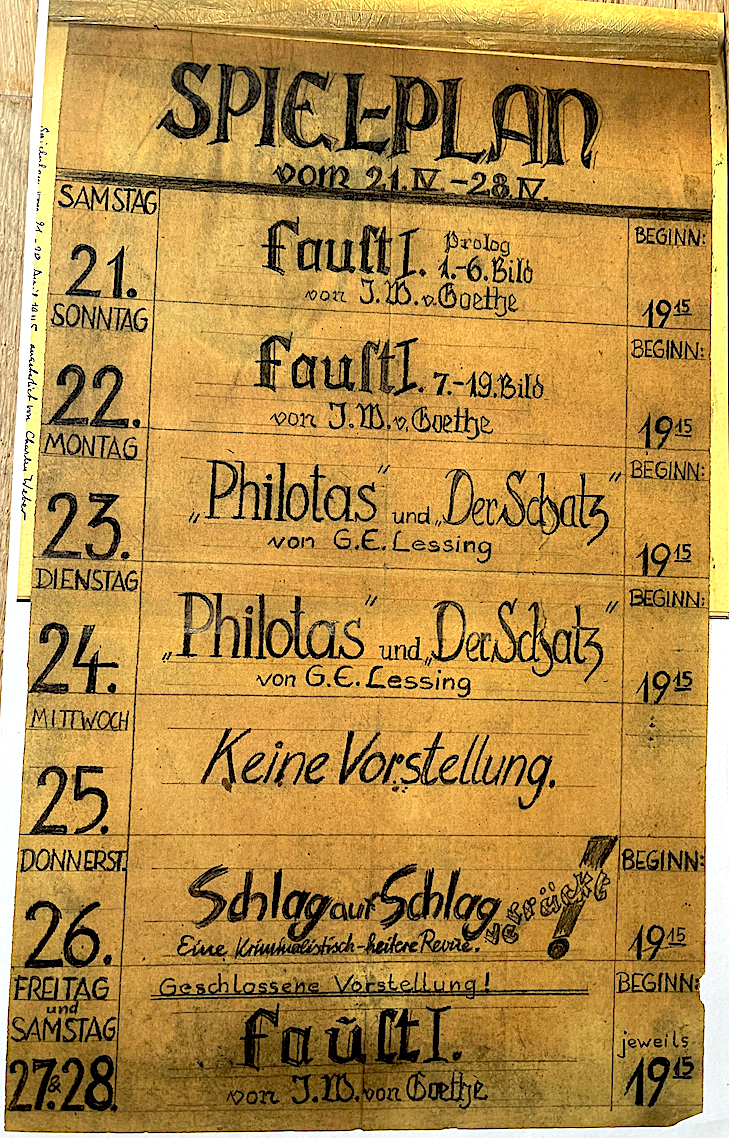 SPIEL-PLAN
vom 21.IV.-28.IV.
SAMSTAG
21.
Faust I. Prolog
1.-6.Bild
von J.W.v.Goethe
BEGINN:
19 15
SONNTAG
22.
Faust I. 7.-19.Bild
von J.W.v.Goethe
BEGINN:
19 15
MONTAG
23.
„Philotas" und „Der Schatz"
von G.E.Lessing
BEGINN:
19 15
DIENSTAG
24.
„Philotas" und „Der Schatz"
von G.E.Lessing
BEGINN:
19 15
MITTWOCH
25.
Keine Vorstellung.
DONNERST.
26.
Schlag auf Schlag verrückt!
Eine kriminalistisch-heitere Revue.
BEGINN:
19 15
FREITAG
und
SAMSTAG
27.&28.
Geschlossene Vorstellung!
Faust I.
von J.W.von Goethe
BEGINN:
jeweils
19 15
Spielplan vom 21.-28. April von Charles Weber